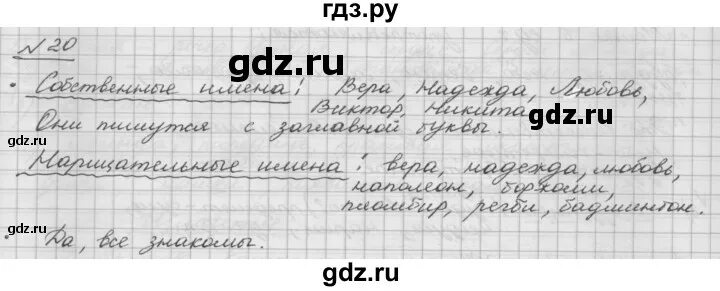 гдз.ру
№ 20
gdz.ru
• Собственные имена: Вера, Надежда, Любовь,
Виктор, Никита.
Они пишутся с заглавной буквы.
Нарицательные имена: вера, надежда, любовь,
наполеон, боржоми,
пломбир, регби, бадминтон.
gdz.ru
• Да, все знакомы.
gdz.ru
gdz.ru